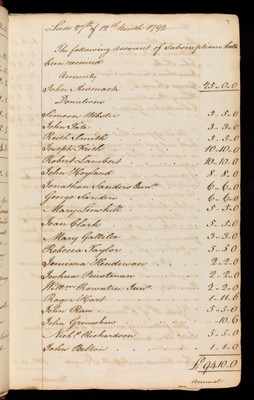 Leeds 27th of 12th Month 1792
The following account of Subscriptions hath
been received
Annuity
John Awmack 25-0-0
Donations
Simeon Webster 3-5-0
John Tate 3-3-0
Keith Smith 5-0
Joseph Frith 10-10-0
Robert Lambert 10-10-0
John Hoyland 8-8-0
Jonathan Sanders Junr. 6-6-0
George Sanders 6-6-0
Mary 5-5-0
Joan Clark 5-5-0
Mary 3-3-0
Rebecca Taylor 5-5-0
Jemima 2-2-0
Joshua Priestman 2-2-0
Willm. Rowntree Junr. 2-2-0
Roger Hart 1-11-6
John Raw 5-5-0
John Grimshaw 10.6
Nichs. Richardson 5-5-0
John Belton 1-1-0
£94.10.0
Annual